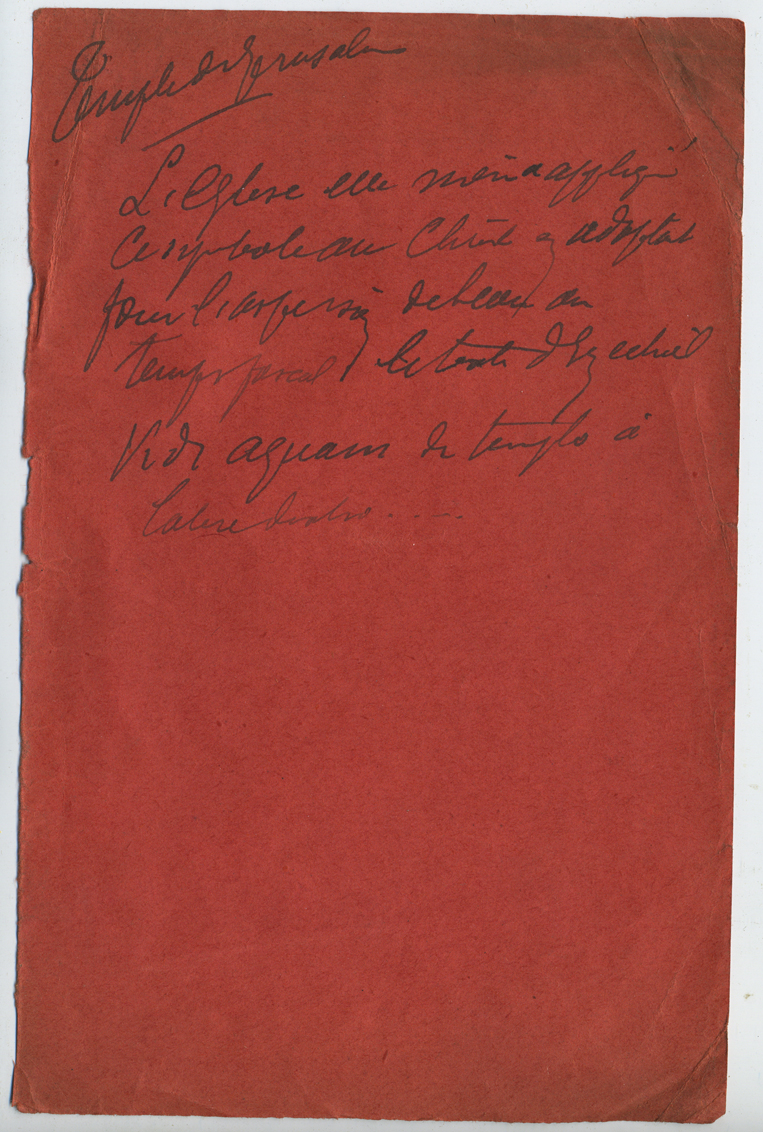 Temple de Jerusalem
L'eglise elle même a appliqué
ce symbole au Christ en adoptant
pour l'aspersion de l'eau au
temps pascal, le texte d'Ezechiel
Vidi aquam de templo à
latere dextro .....